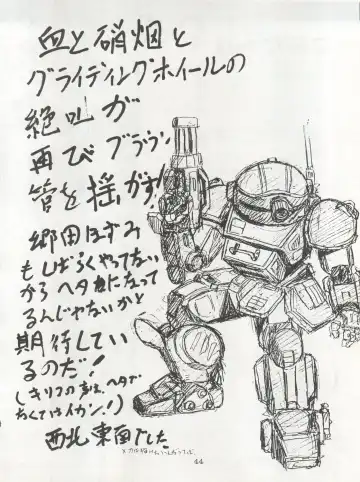 血と硝煙と
グライディングホイールの
絶叫が
再びブラウン
管を揺がす!
郷田ほずみ
もしばらくやってない
からヘタクソになって
るんじゃないかと
期待してい
るのだ!
(キリコの声は、ヘタで
なくてはイカン!)
西北東南でした
44